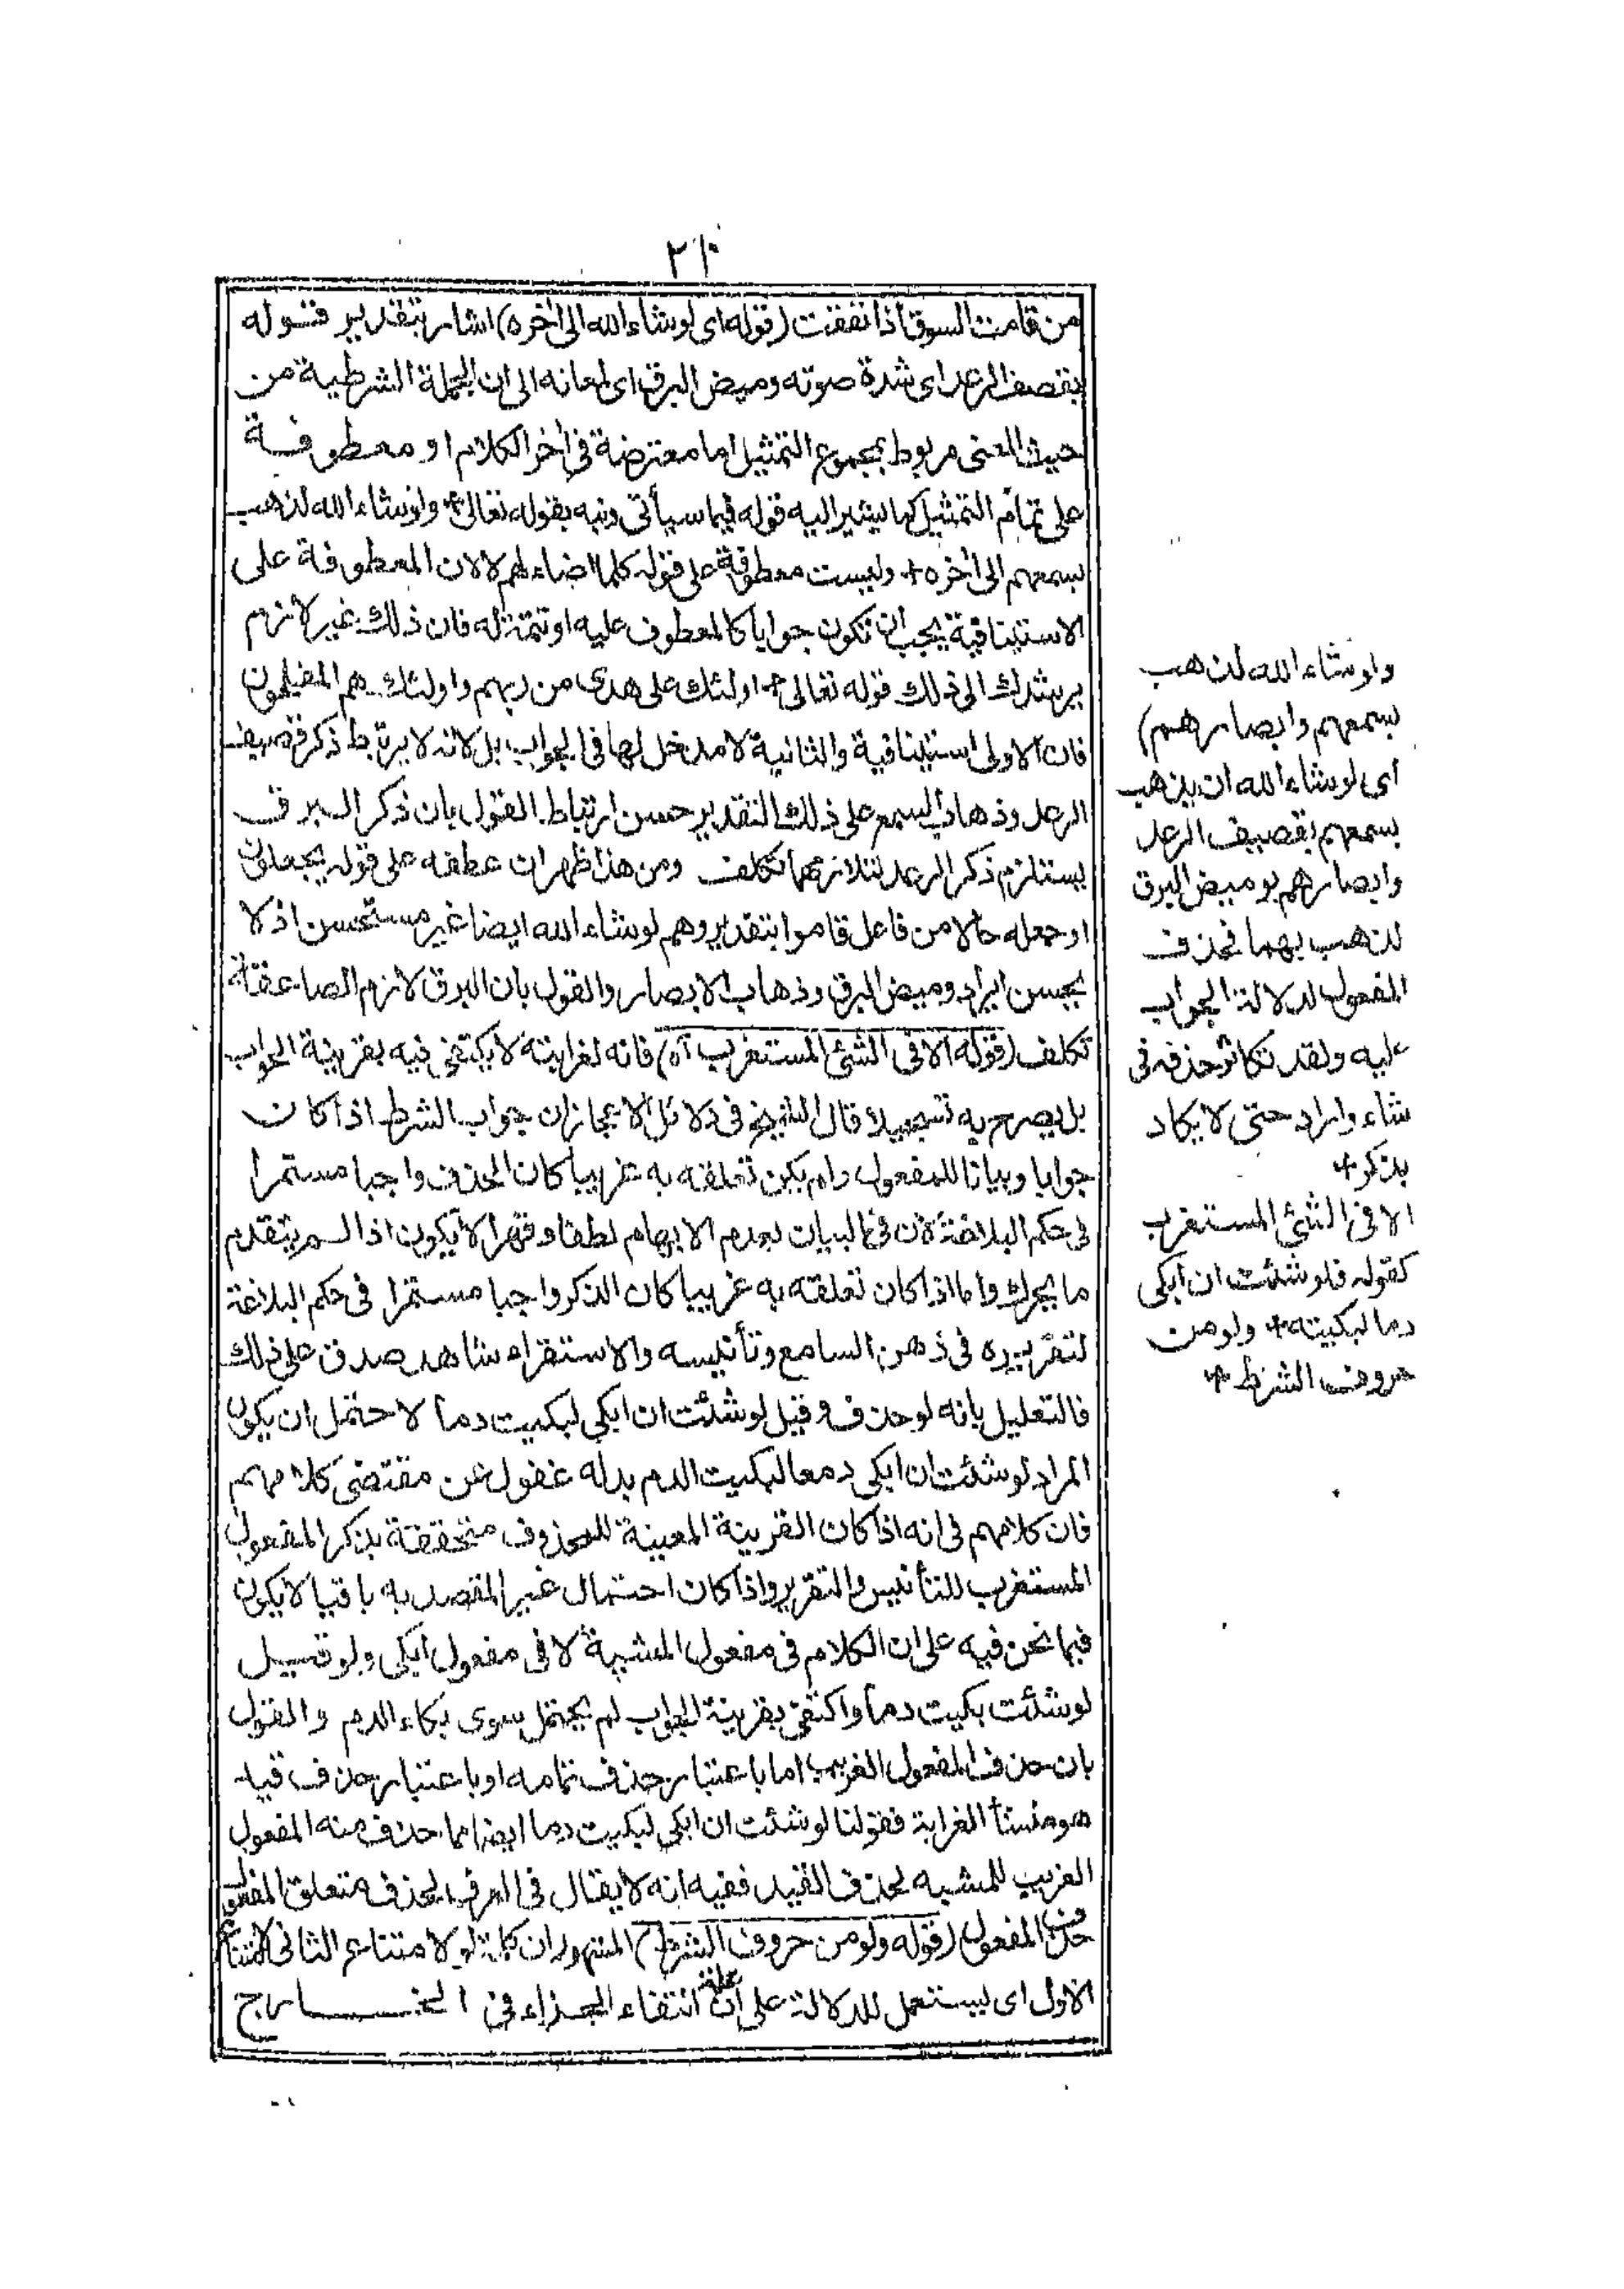 ٢١٠
من قامت السوق اذا نفقت (قوله اى لو شاء الله الى اخره) اشار بتقدير قوله
بقصف الرعد اى شدة صوته وميض البرق اى لمعانه الى ان الجملة الشرطية من
حيث المعنى مربوط بمجموع التمثيل اما معترضة فى اخر الكلام او معطوفة
على تمام التمثيل كما يشير اليه قوله فيما سيأتى ونبه بقوله تعالى + ولو شاء الله لذهب
بسمعهم الى اخره + وليست معطوفة على قوله كلما اضاء لهم لا لان المعطوفة على
الاستينافية يجب ان تكون جوابا كالمعطوف عليه او تتمة له فان ذلك غير لازم
يرشدك الى ذلك قوله تعالى + اولئك على هدى من ربهم واولئك هم المفلحون
فان الاولى استينافية والثانية لا مدخل لها فى الجواب بل لانه لا يرتبط ذكر قصيف
الرعد وذهاب السمع على ذلك التقدير حسن ارتباط القول بان ذكر البرق
يستلزم ذكر الرعد لتلازمهما تكلف ومن هذا ظهر ان عطفه على قوله يجعلون
او جعله حالا من فاعل قاموا بتقدير وهم لو شاء الله ايضا غير مستحسن اذ لا
يحسن ايراد وميض البرق وذهاب الابصار والقول بان البرق لازم الصاعقة
تكلف (قوله الا فى الشئ المستغرب آه) فانه لغرابته لا يكتفى فيه بقرينة الجواب
بل يصرح به تسجيلا قال الشيخ فى دلائل الاعجاز ان جواب الشرط اذا كان
جوابا وبيانا للمفعول ولم يكن تعلقه به غريبا كان الحذف واجبا مستمرا
فى حكم البلاغة لان فى البيان بعدم الابهام لطفا وقهرا لا يكون اذا لم يتقدم
ما يحرك واما اذا كان تعلقه به غريبا كان الذكر واجبا مستمرا فى حكم البلاغة
لتقريره فى ذهن السامع وتأنيسه والاستقراء شاهد صدق على ذلك
فالتعليل بانه لو حذف وقيل لو شئت ان ابكى لبكيت دما لاحتمل ان يكون
المراد لو شئت ان ابكى دمعا لبكيت الدم بدله غفول عن مقتضى كلامهم
فان كلامهم فى انه اذا كان القرينة المعينة للمحذوف متحققة بذكر المفعول
المستغرب للتأنيس والتقرير واذا كان احتمال غير المقصد به باقيا لا يكون
فيما نحن فيه على ان الكلام فى مفعول المشية لا فى مفعول ابكى ولو قيل
لو شئت بكيت دما واكتفى بقرينة الجواب لم يحتمل سوى بكاء الدم والقول
بان حذف المفعول الغريب اما باعتبار حذف تمامه او باعتبار حذف قيد
هو منشأ الغرابة فقولنا لو شئت ان ابكى لبكيت دما ايضا مما حذف منه المفعول
الغريب للمشية لحذف القيد ففيه انه لا يقال فى العرف لحذف متعلق المفعول
حذف المفعول (قوله ولو من حروف الشرط) المشهور ان كلمة لو لامتناع الثانى لامتناع
الاول اى يستعمل للدلالة على ان علة انتفاء الجزاء فى الخارج
ولو شاء الله لذهب
بسمعهم وابصارهم)
اى لو شاء الله ان يذهب
بسمعهم بقصيف الرعد
وابصارهم بوميض البرق
لذهب بهما فحذف
المفعول لدلالة الجواب
عليه ولقد تكاثر حذفه فى
شاء واراد حتى لا يكاد
يذكر +
الا فى الشئ المستغرب
كقوله فلو شئت ان ابكى
دما لبكيته + ولو من
حروف الشرط +